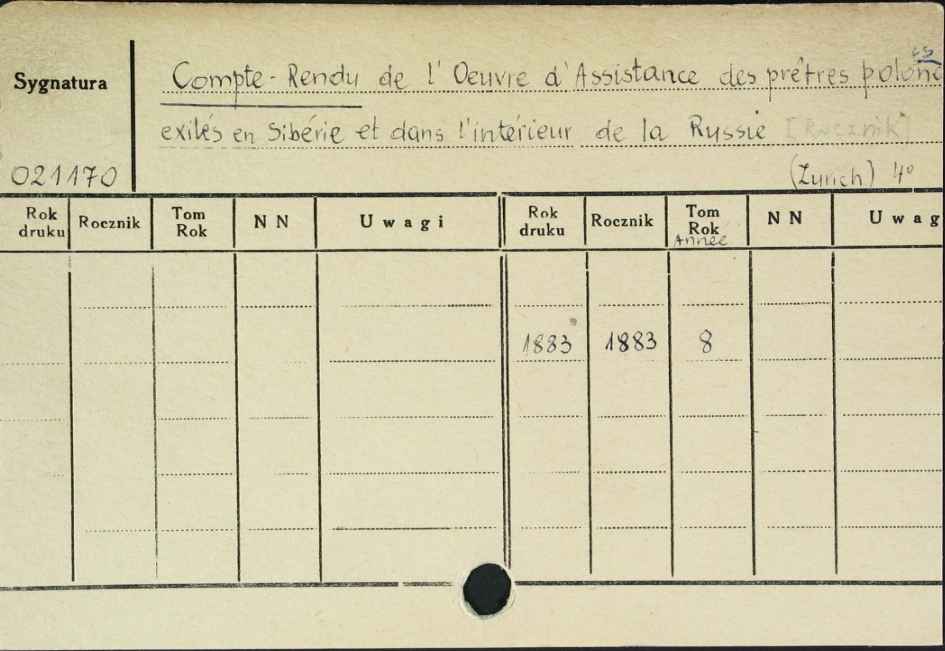 Sygnatura
Compte-Rendu de l'Oeuvre d'Assistance des prêtres polonais
exilés en Sibérie et dans l'intérieur de la Russie [Rocznik]
021170 (Zurich) 4°
Rok druku Rocznik Tom Rok NN Uwagi Rok druku Rocznik Tom Rok Année NN Uwag
1883 1883 8